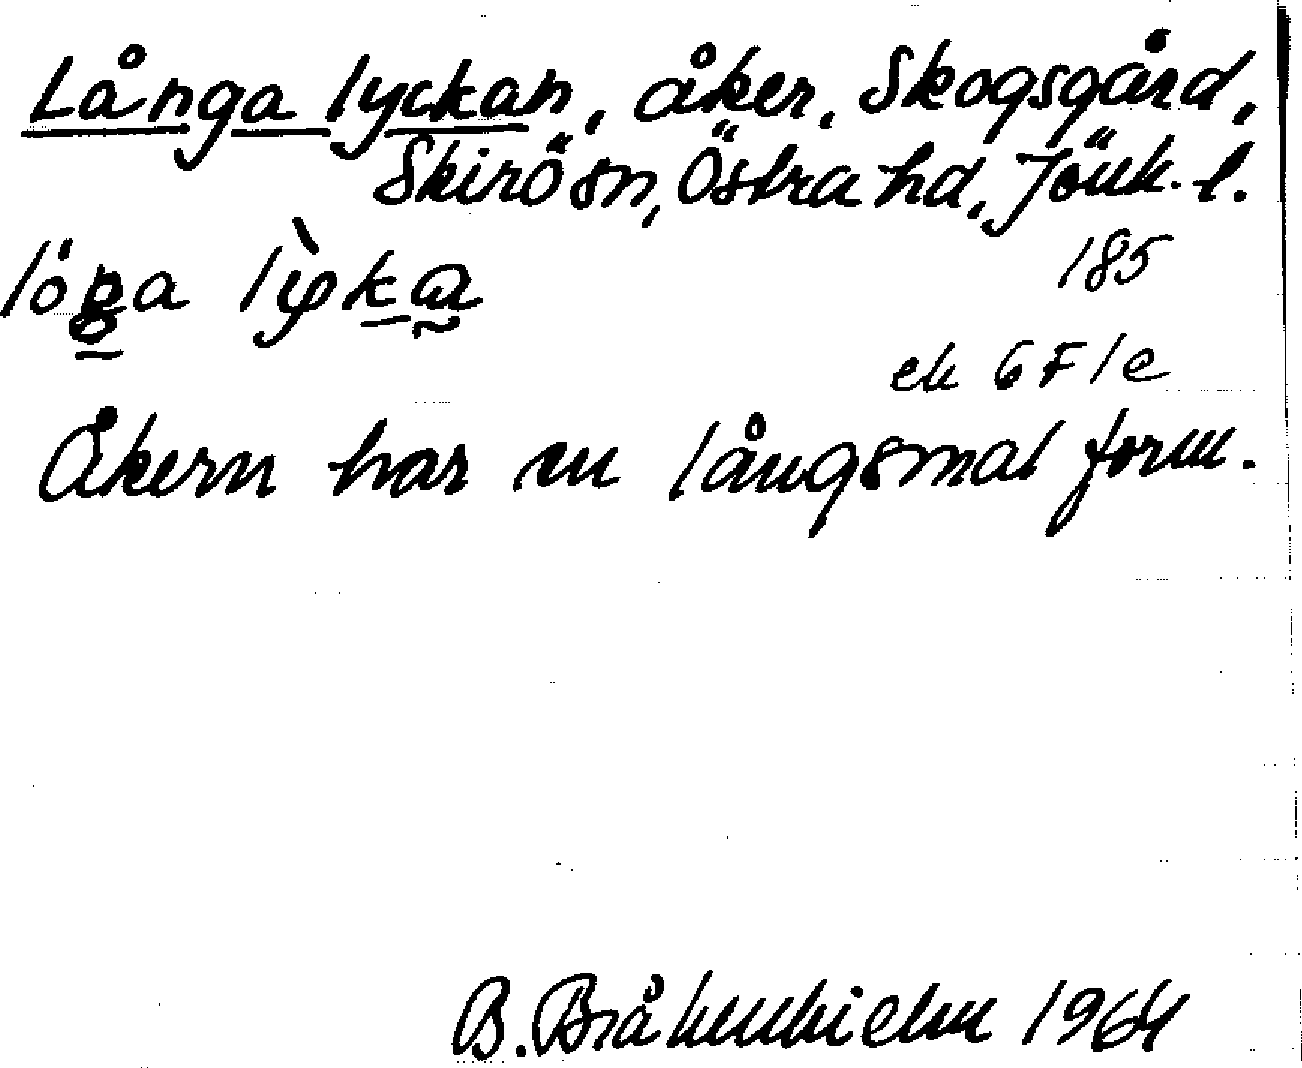 Långa lyckan, åker, Skogsgård,
Skirö sn, Östra hd, Jönk. l.
185
ek 6 F 1 e
Åkern har en långsmal form.
B. Bråkenhielm 1964